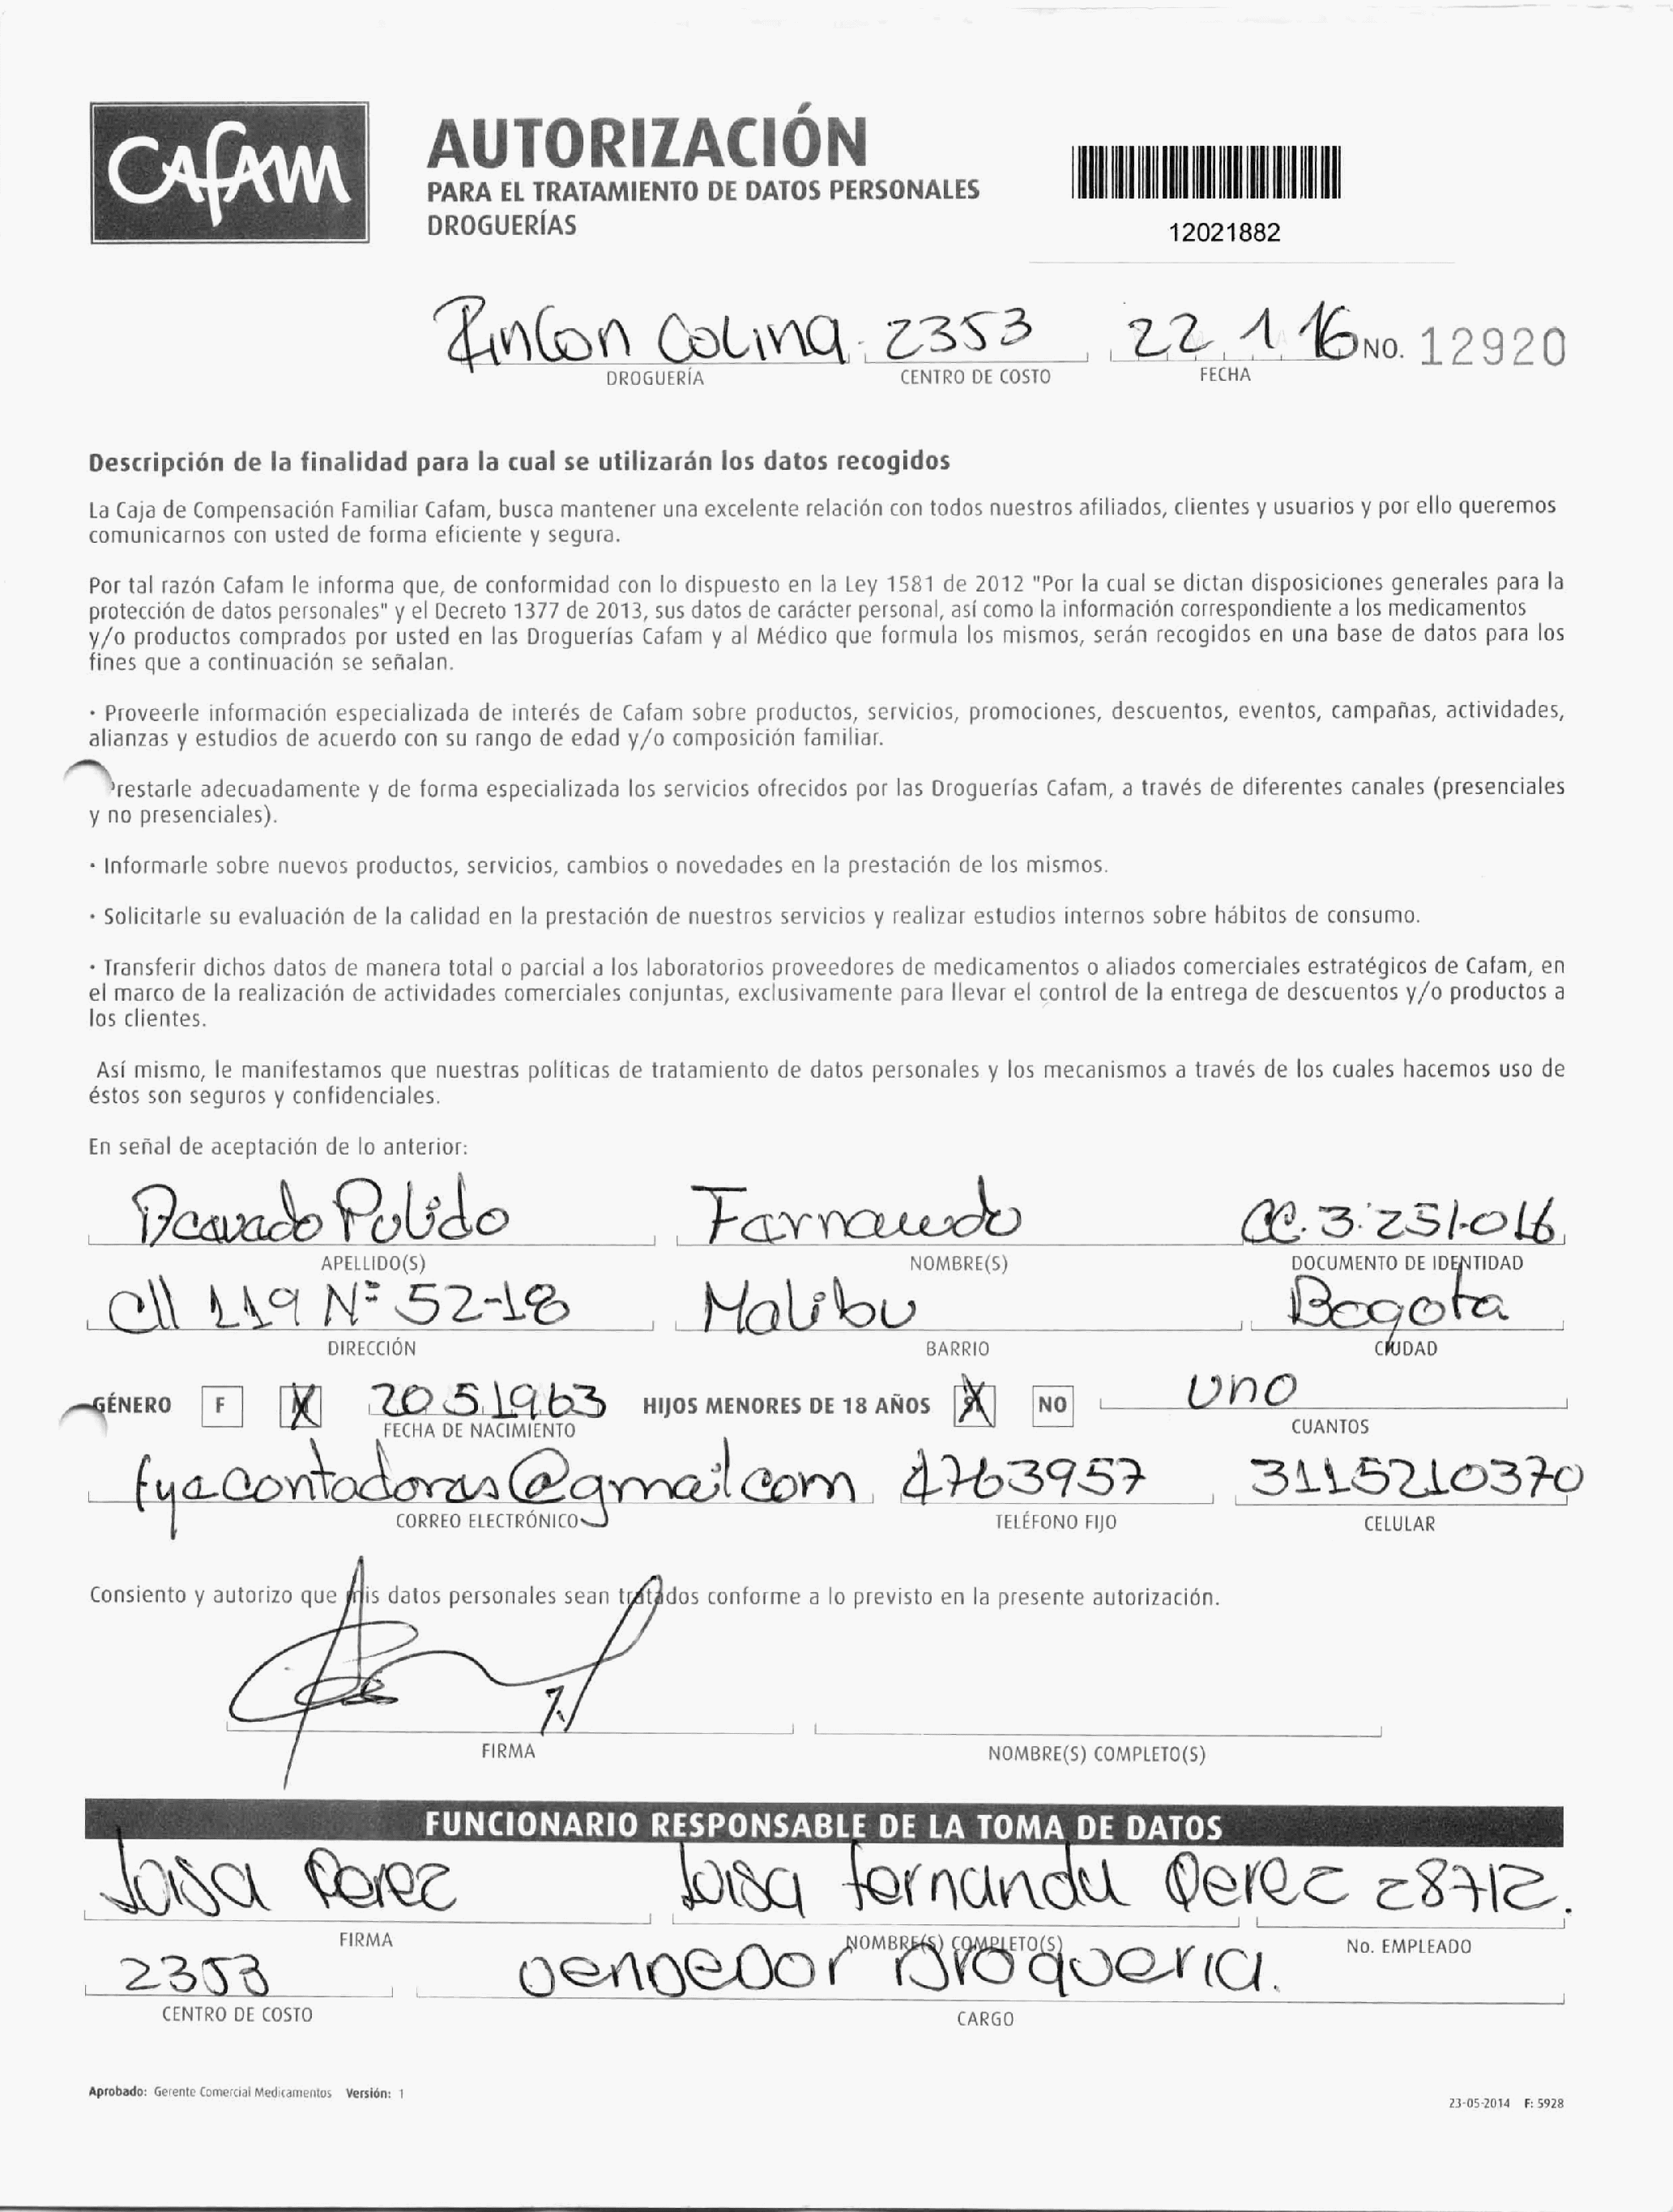 CAFAM
AUTORIZACIÓN
PARA EL TRATAMIENTO DE DATOS PERSONALES
DROGUERÍAS
12021882
Rincon Colina 2353 22 1 16 NO. 12920
DROGUERÍA CENTRO DE COSTO FECHA
Descripción de la finalidad para la cual se utilizarán los datos recogidos
La Caja de Compensación Familiar Cafam, busca mantener una excelente relación con todos nuestros afiliados, clientes y usuarios y por ello queremos
comunicarnos con usted de forma eficiente y segura.
Por tal razón Cafam le informa que, de conformidad con lo dispuesto en la Ley 1581 de 2012 "Por la cual se dictan disposiciones generales para la
protección de datos personales" y el Decreto 1377 de 2013, sus datos de carácter personal, así como la información correspondiente a los medicamentos
y/o productos comprados por usted en las Droguerías Cafam y al Médico que formula los mismos, serán recogidos en una base de datos para los
fines que a continuación se señalan.
· Proveerle información especializada de interés de Cafam sobre productos, servicios, promociones, descuentos, eventos, campañas, actividades,
alianzas y estudios de acuerdo con su rango de edad y/o composición familiar.
Prestarle adecuadamente y de forma especializada los servicios ofrecidos por las Droguerías Cafam, a través de diferentes canales (presenciales
y no presenciales).
· Informarle sobre nuevos productos, servicios, cambios o novedades en la prestación de los mismos.
· Solicitarle su evaluación de la calidad en la prestación de nuestros servicios y realizar estudios internos sobre hábitos de consumo.
· Transferir dichos datos de manera total o parcial a los laboratorios proveedores de medicamentos o aliados comerciales estratégicos de Cafam, en
el marco de la realización de actividades comerciales conjuntas, exclusivamente para llevar el control de la entrega de descuentos y/o productos a
los clientes.
Así mismo, le manifestamos que nuestras políticas de tratamiento de datos personales y los mecanismos a través de los cuales hacemos uso de
éstos son seguros y confidenciales.
En señal de aceptación de lo anterior:
Pulido Fernando CC. 3.251.016
APELLIDO(S) NOMBRE(S) DOCUMENTO DE IDENTIDAD
Cll 119 Nº 52-18 Malibu Bogota
DIRECCIÓN BARRIO CIUDAD
GÉNERO F M 20 5 1963 HIJOS MENORES DE 18 AÑOS SI NO uno
FECHA DE NACIMIENTO CUANTOS
fyacontadores@gmail.com 4763957 3115210370
CORREO ELECTRÓNICO TELÉFONO FIJO CELULAR
Consiento y autorizo que mis datos personales sean tratados conforme a lo previsto en la presente autorización.
FIRMA NOMBRE(S) COMPLETO(S)
FUNCIONARIO RESPONSABLE DE LA TOMA DE DATOS
Luisa Perez Luisa fernanda Perez 28712.
FIRMA NOMBRE(S) COMPLETO(S) No. EMPLEADO
2353 vendedor Drogueria.
CENTRO DE COSTO CARGO
Aprobado: Gerente Comercial Medicamentos Versión: 1
23-05-2014 F: 5928